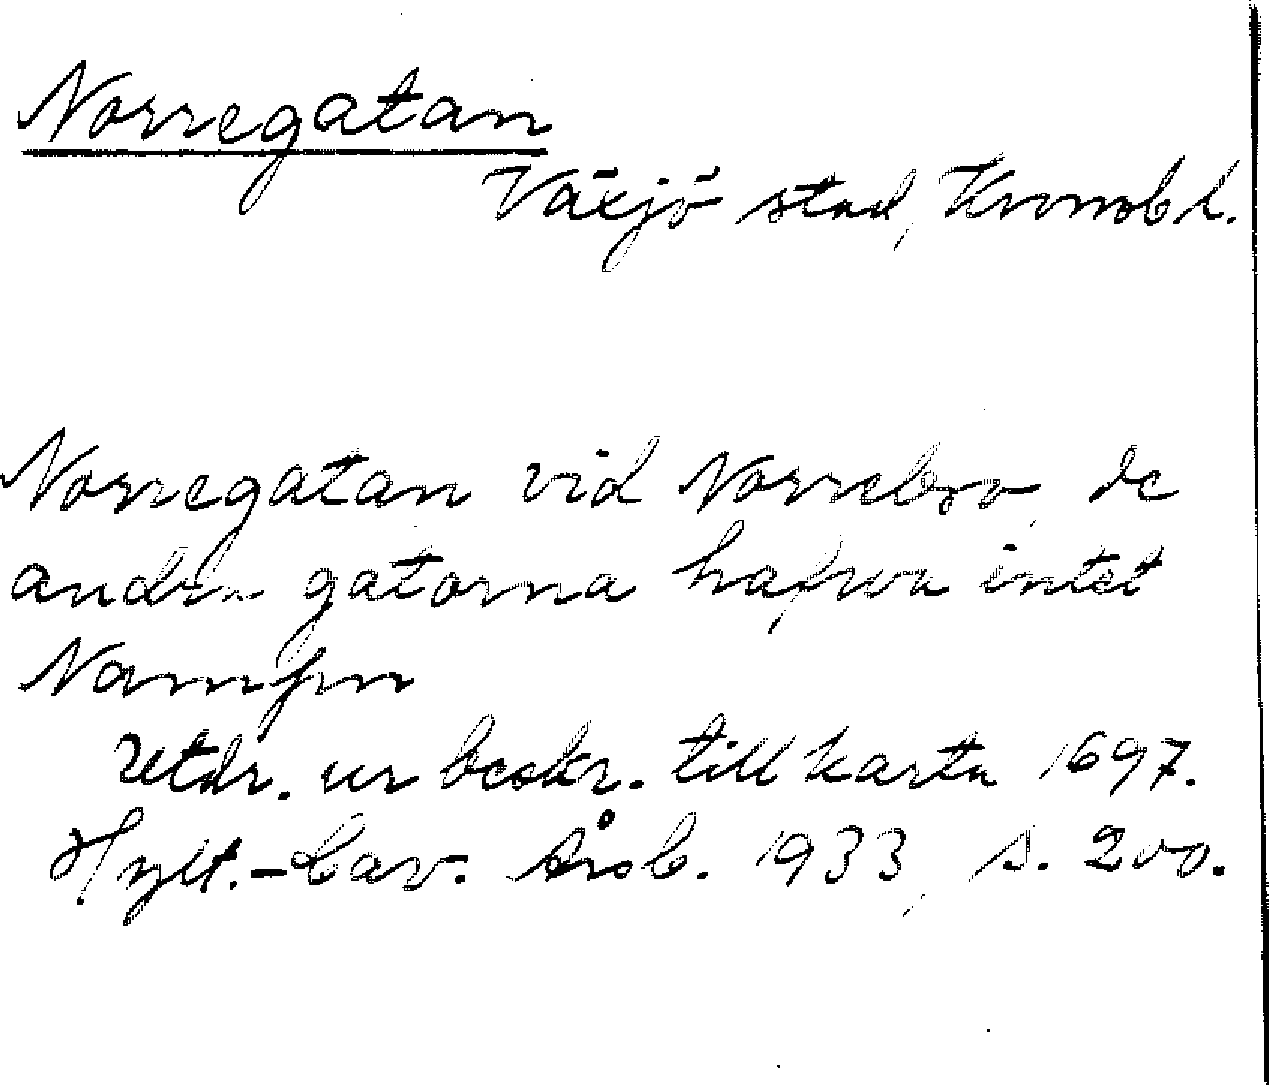 Norregatan
Växjö stad, Kronob l.
Norregatan vid Norrebro, de
andra gatorna hafwa intet
Namfn
Utdr. ur beskr. till karta 1697.
Hylt.-Cav. Årsb. 1933, s. 200.